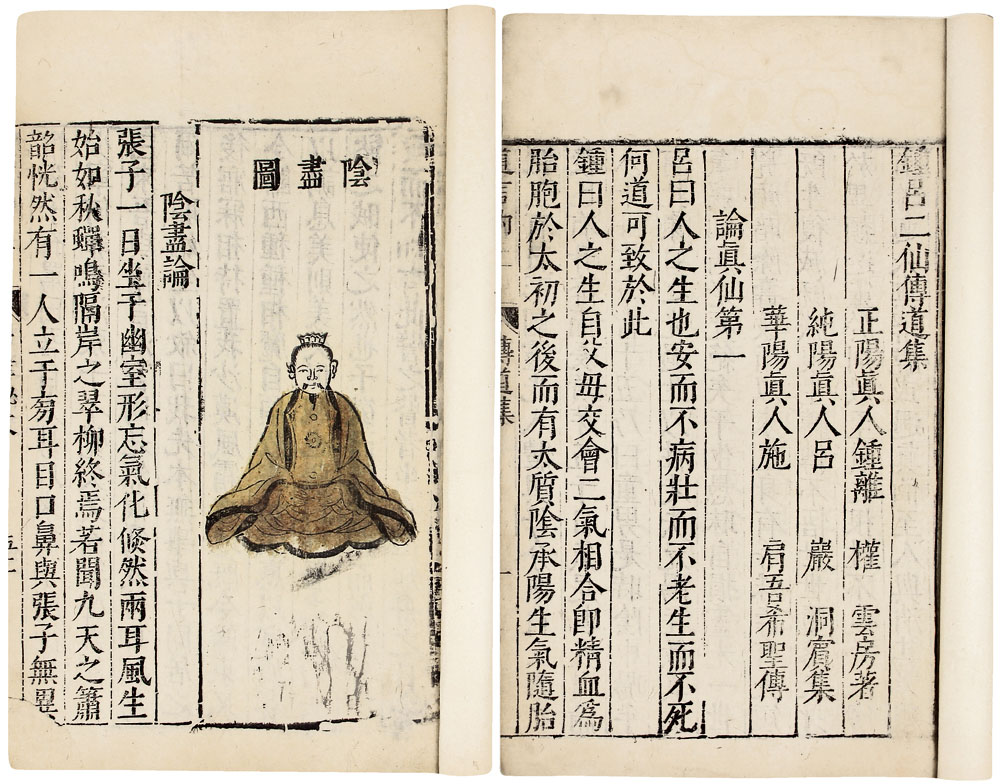 鍾呂二仙傳道集
正陽眞人鍾離　權　雲房著
純陽眞人呂　巖　洞賓集
華陽眞人施　肩吾希聖傳
論眞仙第一
呂曰人之生也安而不病壯而不老生而不死
何道可致於此
鍾曰人之生自父母交會二氣相合卽精血為
胎胞於太初之後而有太質陰承陽生氣隨胎
傳道集
陰盡圖
陰盡論
張子一日坐于幽室形忘氣化倏然兩耳風生
始如秋蟬鳴隔岸之翠柳終焉若聞九天之簫
韶恍然有一人立于旁耳目口鼻與張子無異